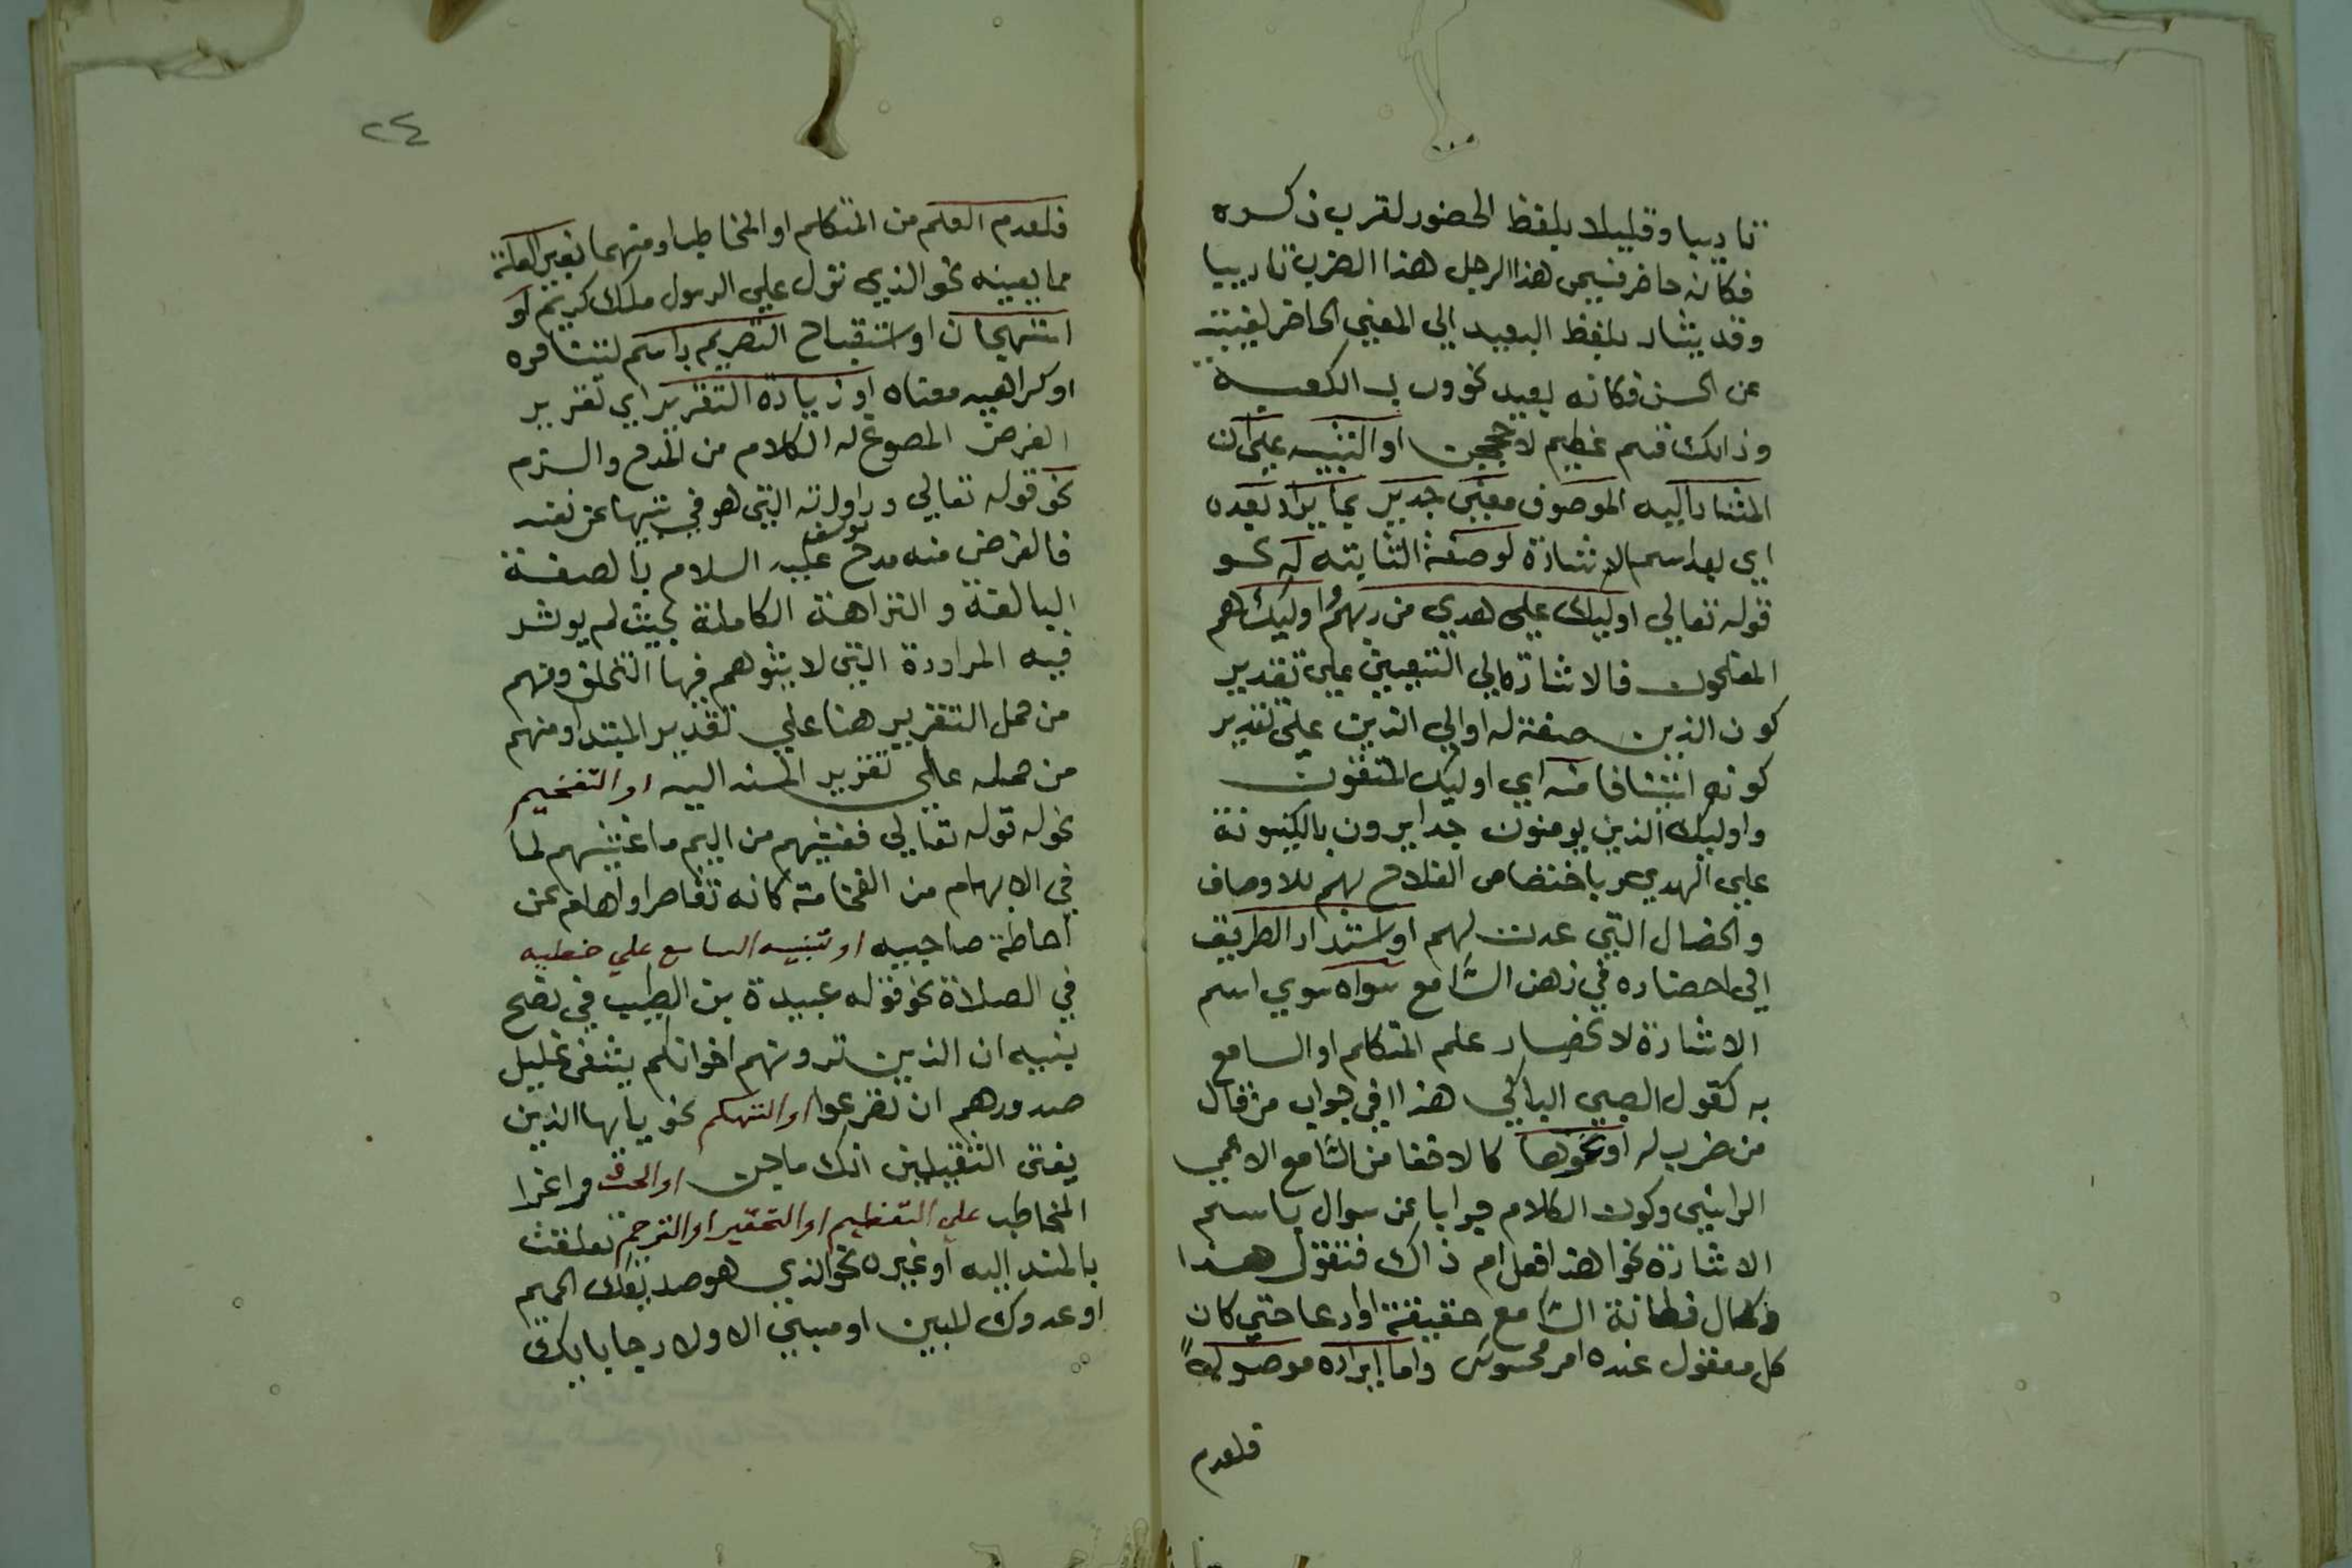 تاديبا وقليلا بلفظ الحضور لقرب ذكره
فكانه حاضر فيسمى هذا الرجل هذا الضرب تاديبا
وقد يشار بلفظ البعيد الي المعني الحاضر لغيبته
عن الحس فكانه بعيد نحو ورب الكعبة
وذالك قسم عظيم لاو حججن او التنبيه علي ان
المشار اليه الموصوف معنى جدير بما يراد بعده
اي بعد اسم الاشارة لوصفة الثابته له نحو
قوله تعالي اوليك علي هدي من ربهم واوليك هم
المفلحون فالاشارة الي المتقين علي تقدير
كون الذين صفة له او الي الذين علي تقدير
كونه استينافا منه اي اوليك المتقون
واوليك الذين يومنون جدايرون بالكينونة
علي الهدي وباختصاص الفلاح بهم للاوصاف
والخصال التي عدت لهم او استداد الطريق
الي احضاره في ذهن السامع سواه سوي اسم
الاشارة لانحصار علم المتكلم او السامع
به كقول الصبي الباكي هذا في جواب من قال
من ضرب له او نحوها كالاخفا من السامع الاعمي
الرايي وكون الكلام جوابا عن سوال باسم
الاشارة نحو اهذا فعل ام ذاك فتقول هذا
وكمال فطانة السامع حقيقة او ادعا حتي كان
كل معقول عنده امر محسوس واما ايراده موصولة
فلعدم
٢٤
فلعدم العلم من المتكلم او المخاطب او منهما بغير الصلة
مما يعينه نحو الذي نزل علي الرسول ملك كريم او
استهجان او استقباح التصريح باسم لتنافره
او كراهيه معناه او زيادة التقرير اي تقرير
الغرض المصوغ له الكلام من المدح والذم
نحو قوله تعالي وراودته التي هو في بيتها عن نفسه
فالغرض منه مدح يوسف عليه السلام بالصفة
البالغة والنزاهة الكاملة بحيث لم يوثر
فيه المراودة التي لا يتوهم فيها التخلق ومنهم
من حمل التقرير هنا علي تقدير المبتدا ومنهم
من حمله علي تقرير المسند اليه او التفخيم
نحو له قوله تعالي فغشيهم من اليم ما غشيهم لما
في الابهام من الفخامة كانه تقاصر اوهام عن
احاطة صاحبيه او تنبيه السامع علي خطيه
في الصلاة نحو قوله عبيدة بن الطبيب في نصح
بنيه ان الذين ترونهم اخوانكم يشفي غليل
صدورهم ان تصرعوا او التهكم نحو يايها الذين
يفتي الثقيلين انك ماجن او الحث واغرا
المخاطب علي التعظيم او التحقير او الترحم تعلقت
بالمسند اليه او غيره نحو الذي هو صديقك الحميم
او عدوك المبين او مسبي الاولاد جا ببابك